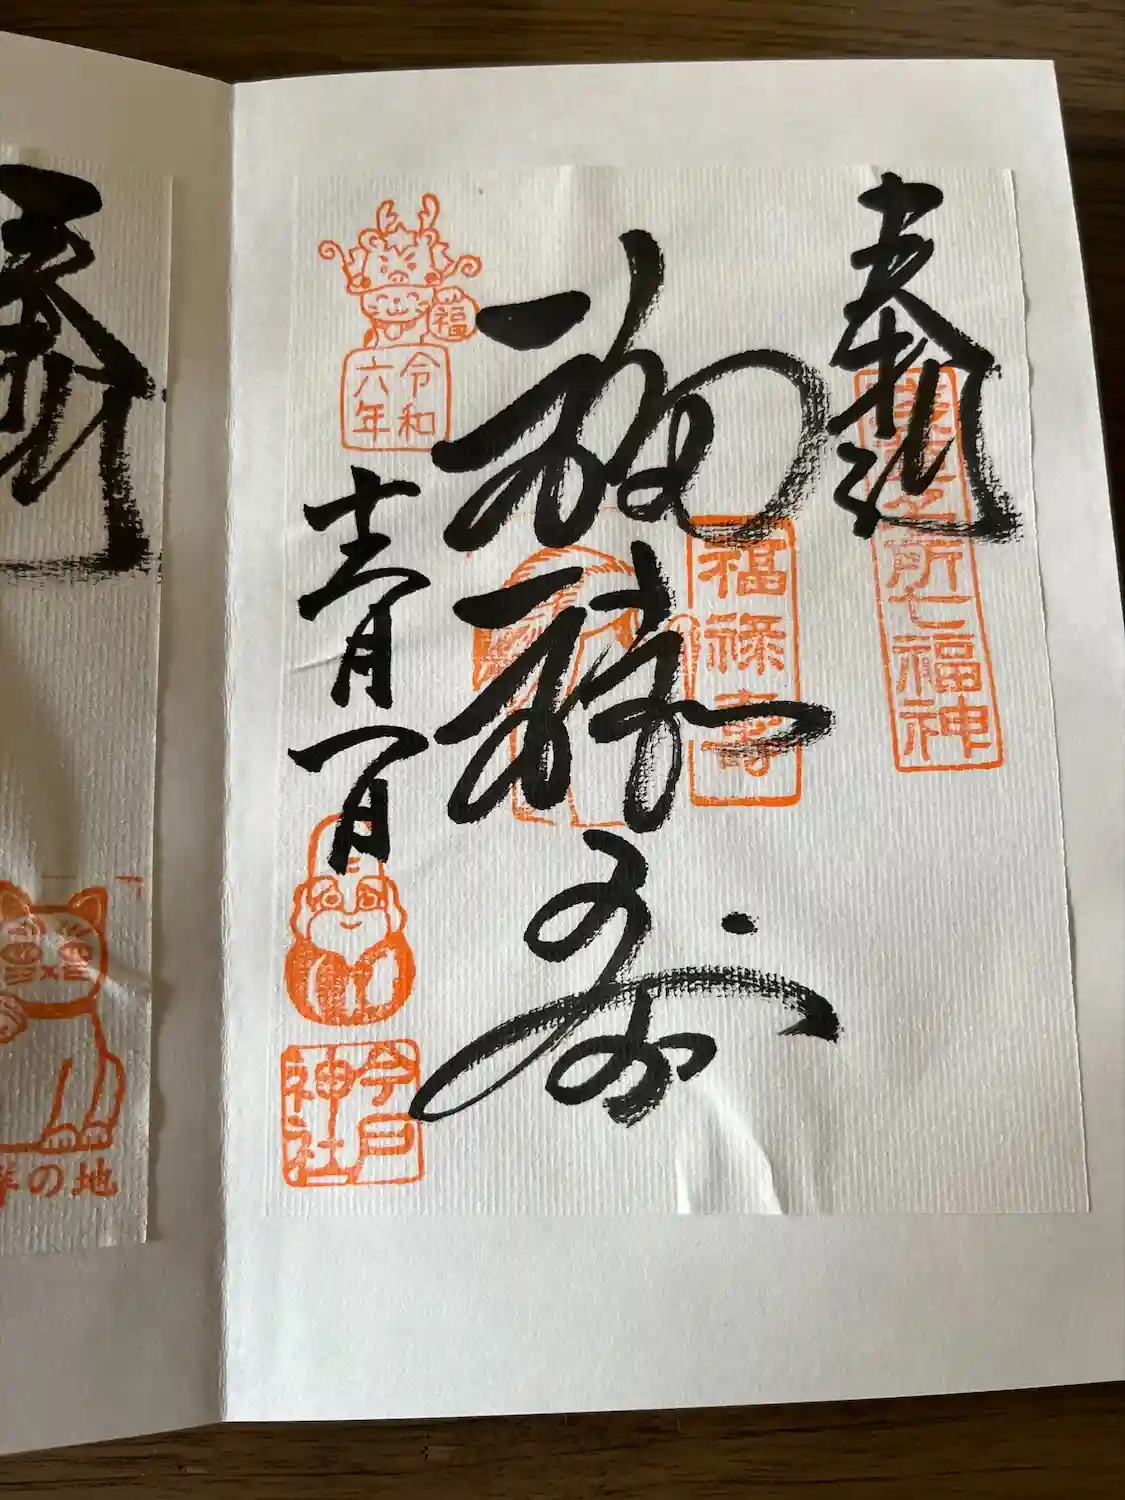 奉拝
浅草名所七福神
福禄寿
福禄寿
福
令和
六年
十二月一日
今戸
神社
の地